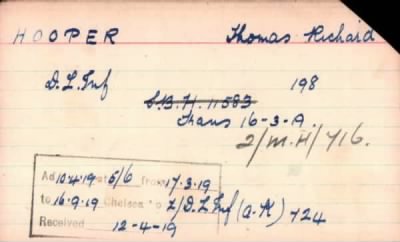 HOOPER Thomas Richard
D.L.Inf 198
S.B.H. 11583
Trans 16-3-A.
2/M.H/716.
Ad 10.4.19 at 5/6 from 17.3.19
to 16.9.19 Chelsea's Z/D.L.Inf (A.K) 724
Received 12-4-19